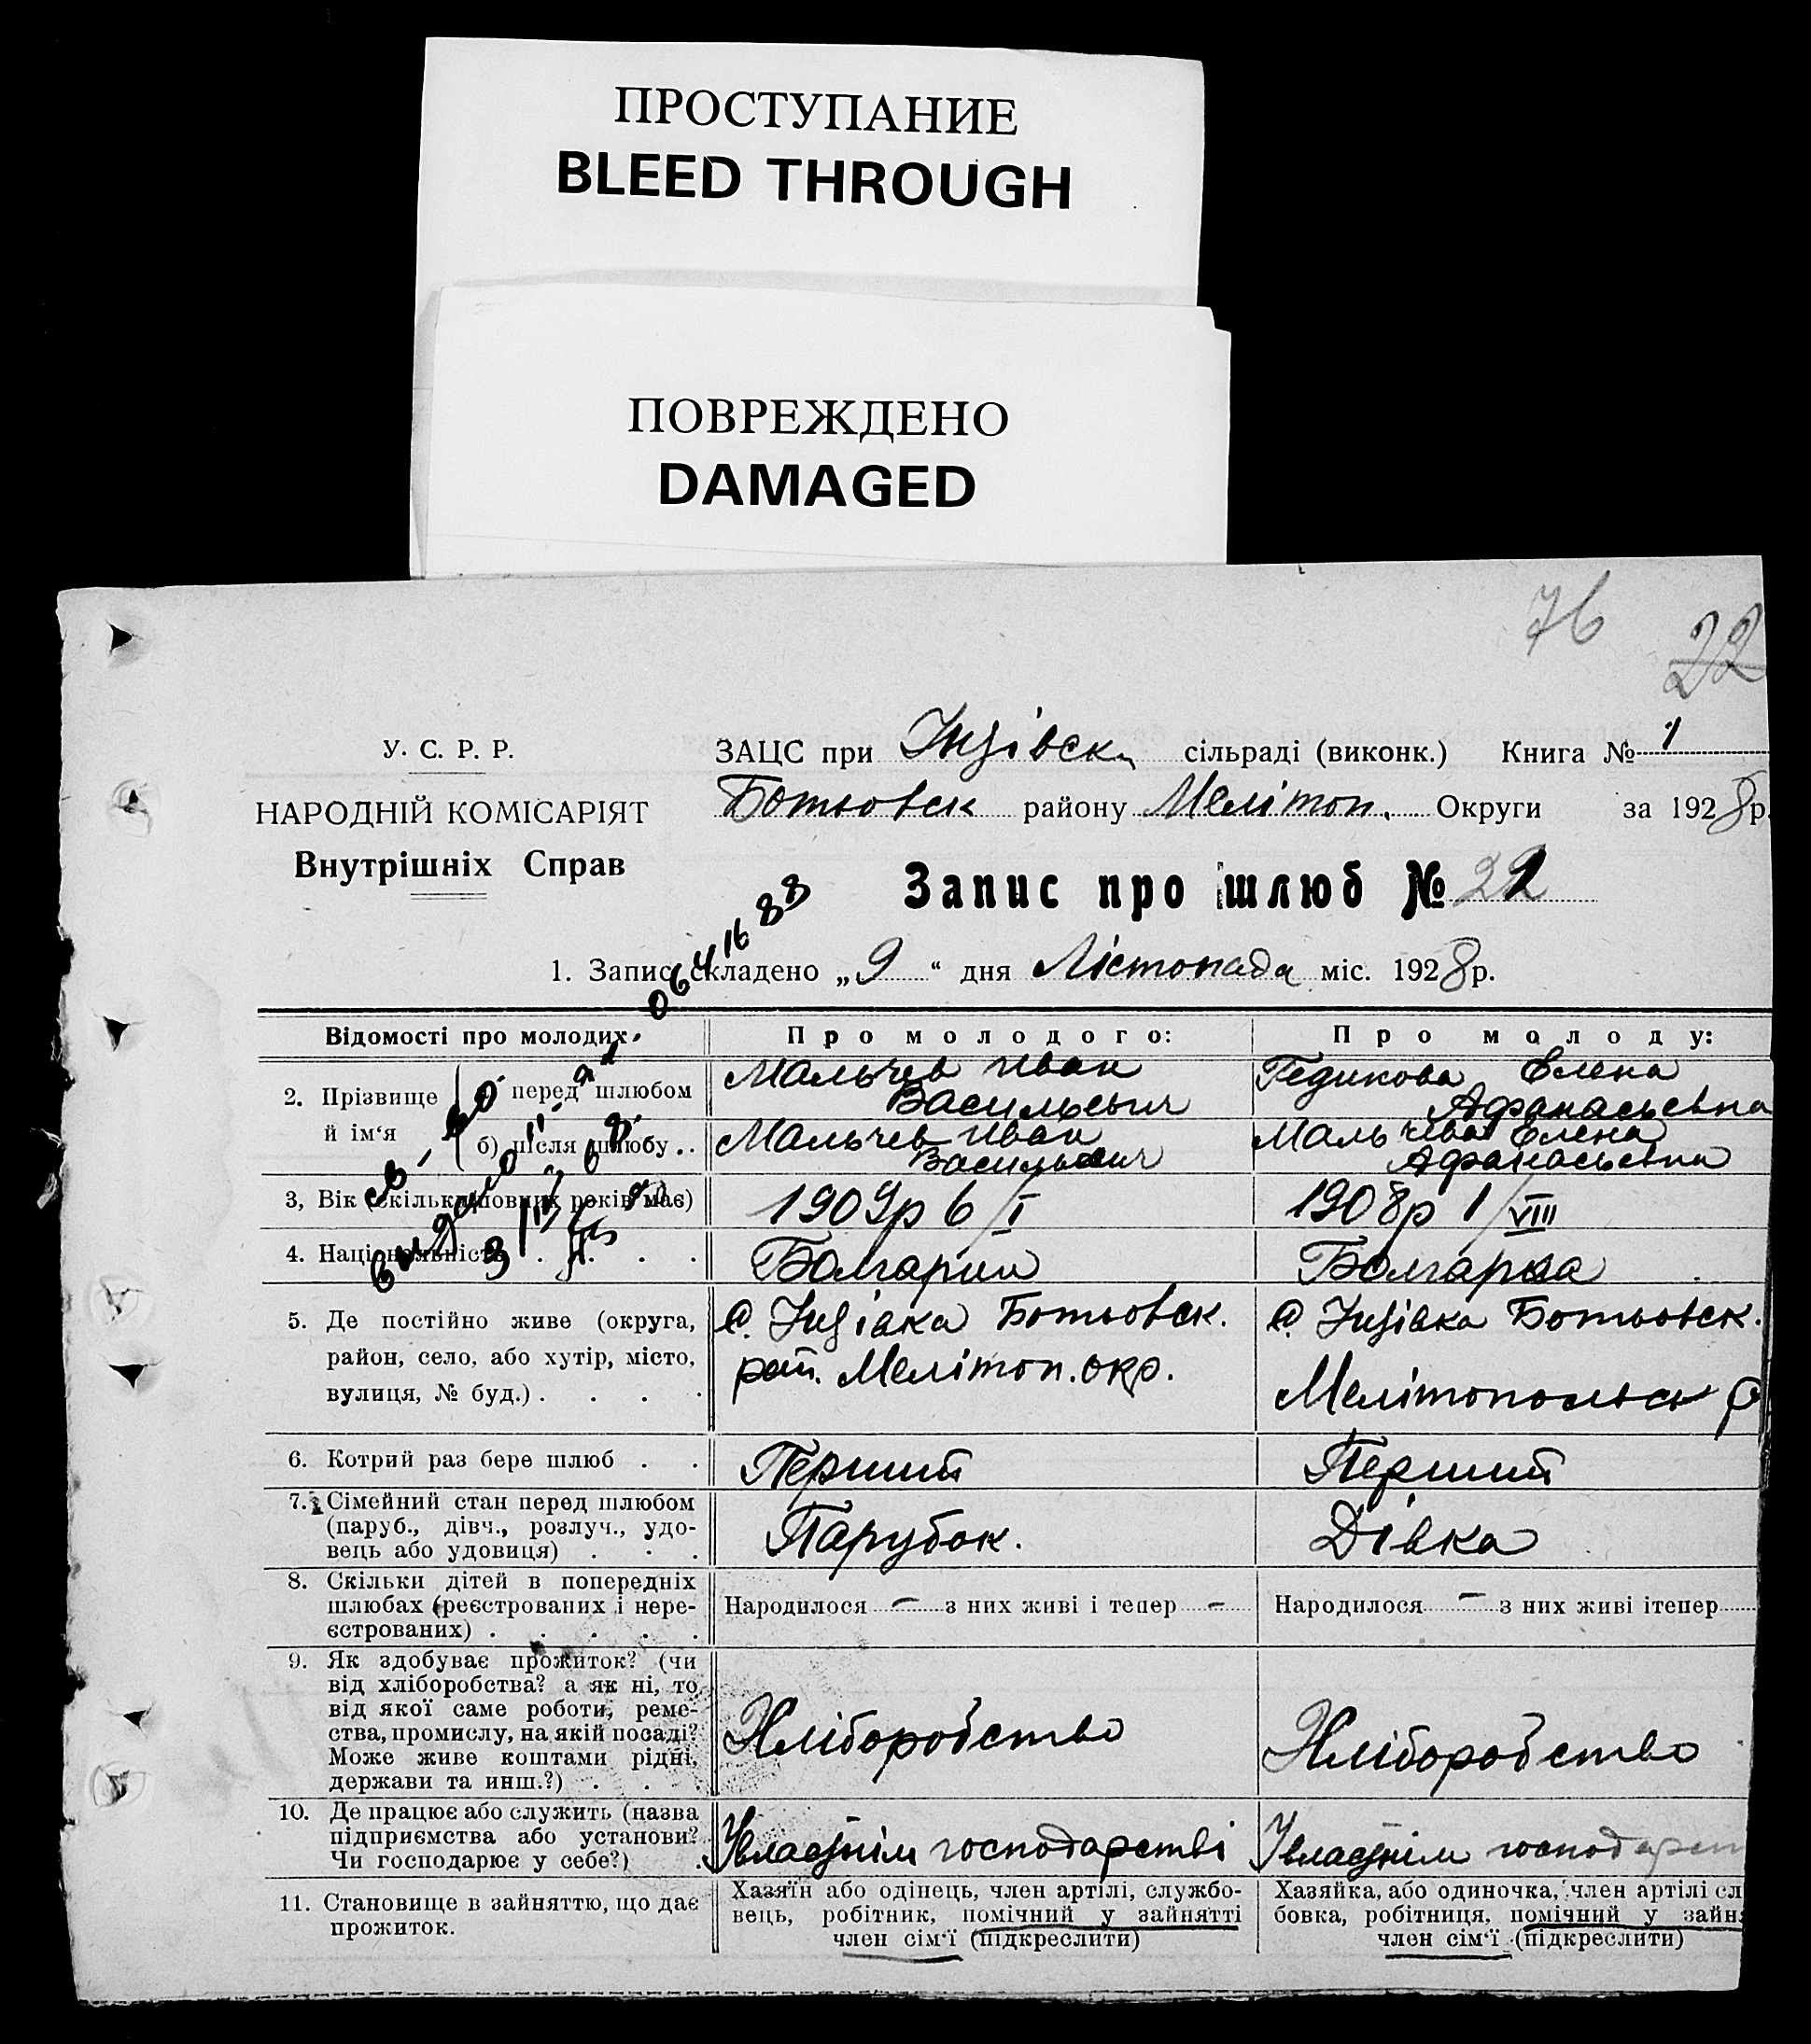 ПРОСТУПАНИЕ
BLEED THROUGH
ПОВРЕЖДЕНО
DAMAGED
76
22
У. С. Р. Р.
НАРОДНІЙ КОМІСАРІЯТ
Внутрішніх Справ
ЗАЦС при Інзівськ сільраді (виконк.) Книга № 1
Ботьовск району Мелітоп. Округи за 1928 р.
Запис про шлюб № 22
1. Запис складено „9“ дня Лістопада міс. 1928 р.
Відомості про молодих
Про молодого:
Про молоду:
2. Прізвище й ім‘я
перед шлюбом
Мальчев Иван
Васильевич
Гедикова Елена
Афанасьевна
б) після шлюбу . .
Мальчев Иван
Васильевич
Мальчева Елена
Афанасьевна
3, Вік (скільки повних років має)
1909р 6/I
1908р 1/VIII
4. Національність . . . .
Болгарин
Болгарка
5. Де постійно живе (округа,
район, село, або хутір, місто,
вулиця, № буд.) . . . .
с. Інзівка Ботьовск.
рай. Мелітоп. окр.
с. Інзівка Ботьовск.
Мелітопольськ
6. Котрий раз бере шлюб . .
Перший
Перший
7. Сімейний стан перед шлюбом
(паруб., дівч., розлуч., удо-
вець або удовиця) . . .
Парубок.
Дівка
8. Скільки дітей в попередніх
шлюбах (реєстрованих і нере-
єстрованих) . . . . .
Народилося — з них живі і тепер —
Народилося — з них живі ітепер
9. Як здобуває прожиток? (чи
від хліборобства? а як ні, то
від якої саме роботи, реме-
ства, промислу, на якій посаді?
Може живе коштами рідні,
держави та инш.?) . . .
Хліборобство
Хліборобство
10. Де працює або служить (назва
підприємства або установи?
Чи господарює у себе?) .
У власнім господарстві
У власнім господарст
11. Становище в зайняттю, що дає
прожиток.
Хазяїн або одінець, член артілі, службо-
вець, робітник, помічний у зайнятті
член сім‘ї (підкреслити)
Хазяйка, або одиночка, член артілі сл
бовка, робітниця, помічний у зайн
член сім‘ї (підкреслити)